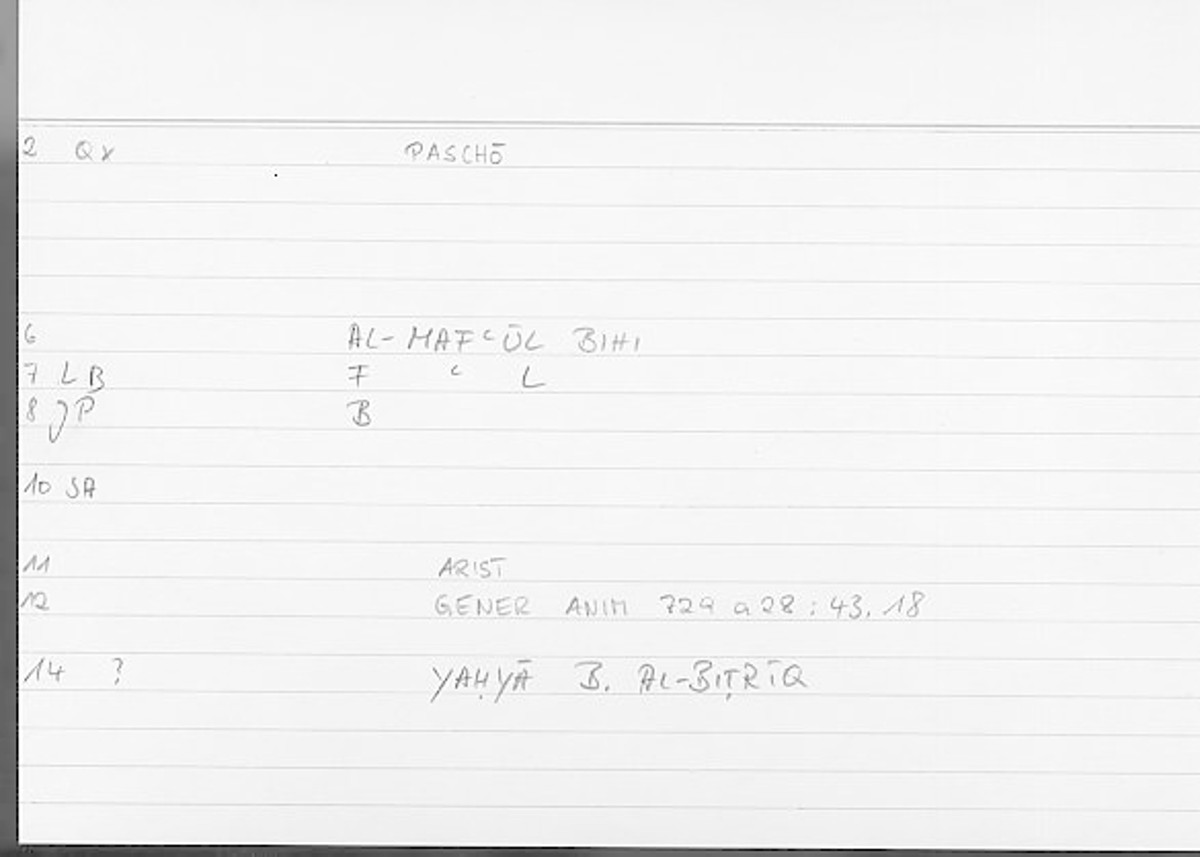 2 QX PASCHŌ
6 AL-MAFʿŪL BIHI
7 LB F ʿ L
8 JP B
10 SA
11 ARIST
12 GENER ANIM 729 a 28 : 43. 18
14 ? YAḤYĀ B. AL-BIṬRĪQ